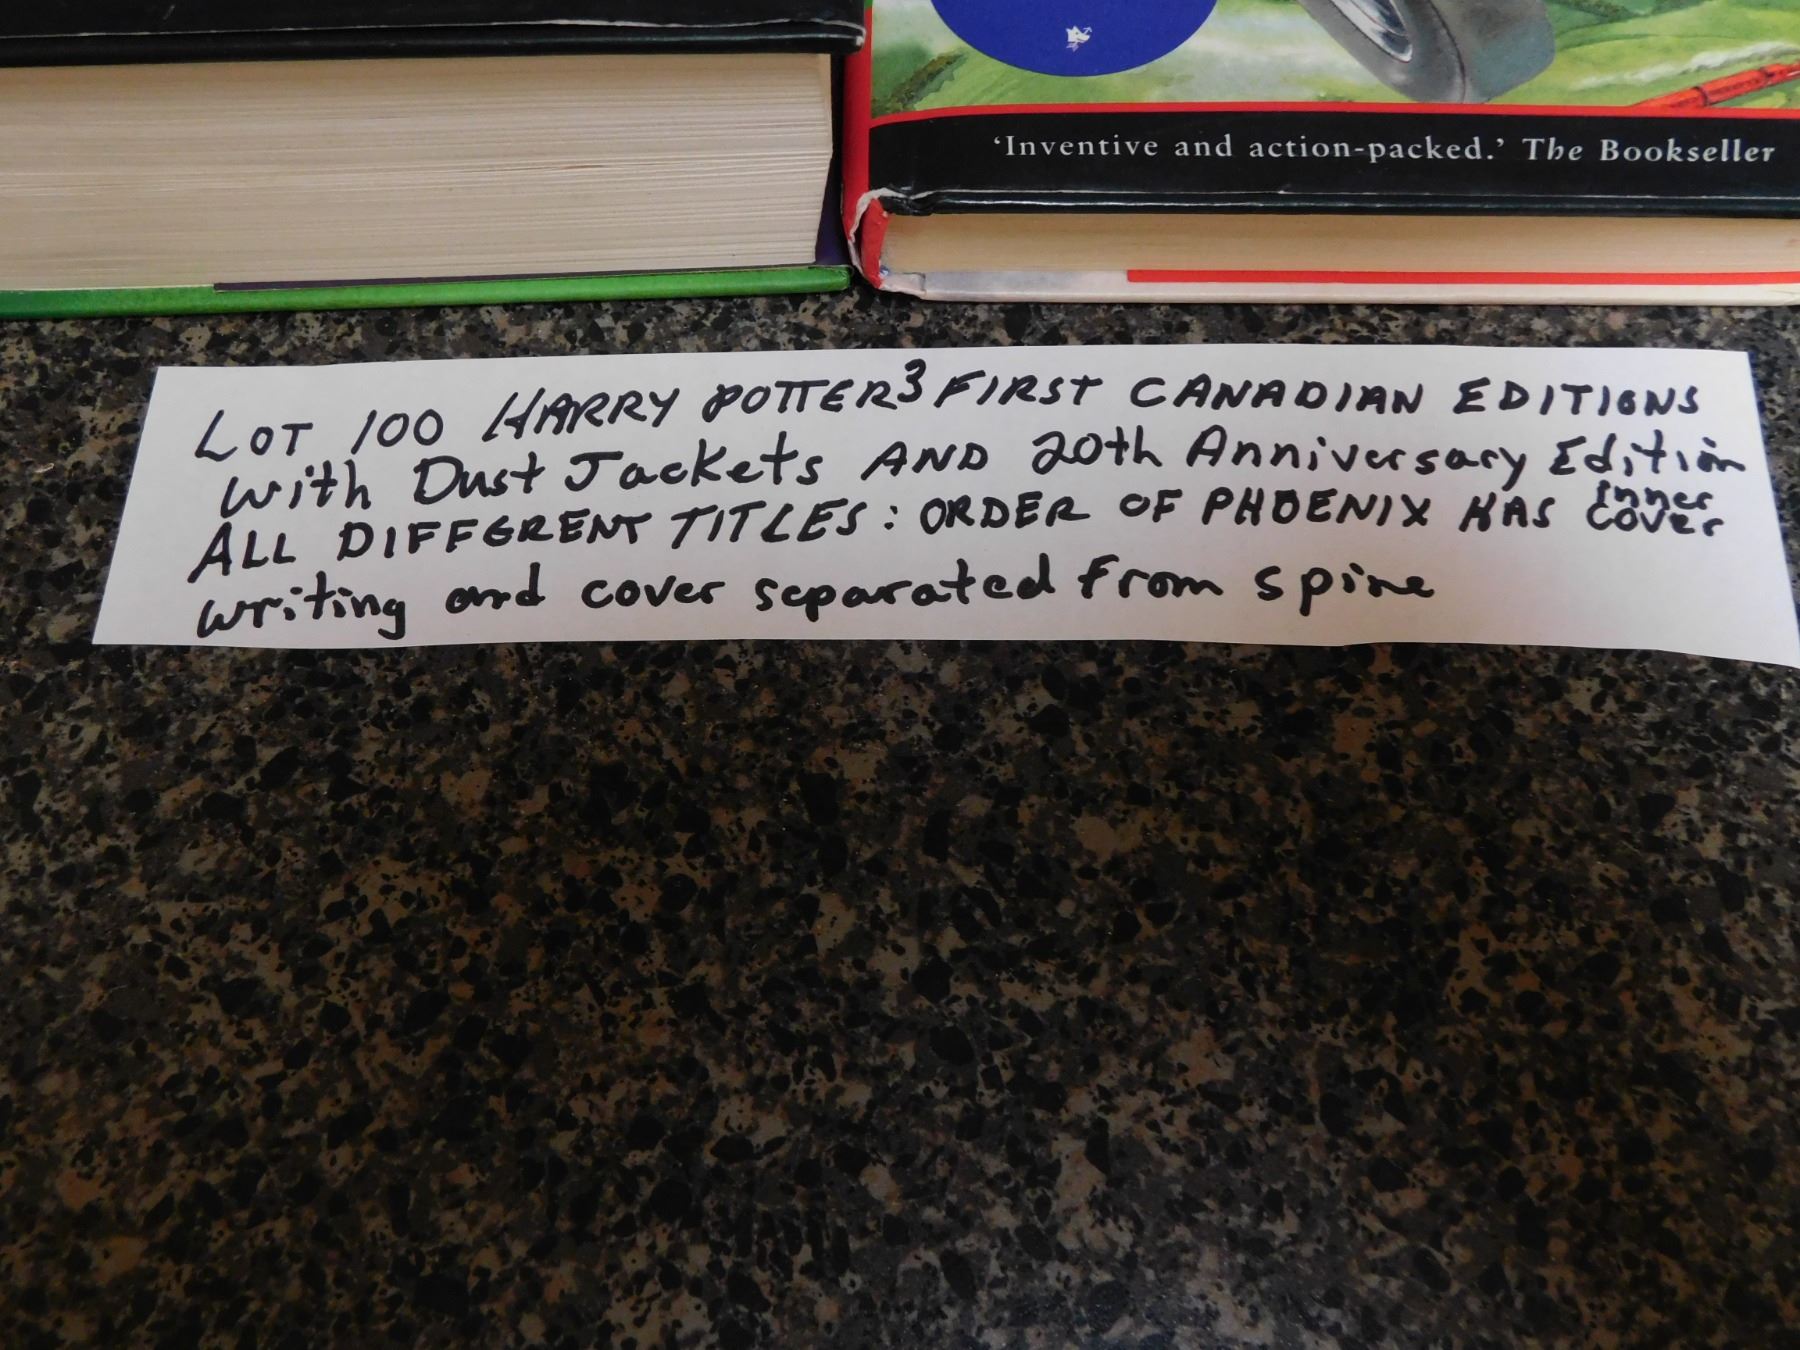 'Inventive and action-packed.' The Bookseller
LOT 100 HARRY POTTER 3 FIRST CANADIAN EDITIONS
with Dust Jackets AND 20th Anniversary Edition
ALL DIFFERENT TITLES: ORDER OF PHOENIX HAS inner cover
writing and cover separated from spine